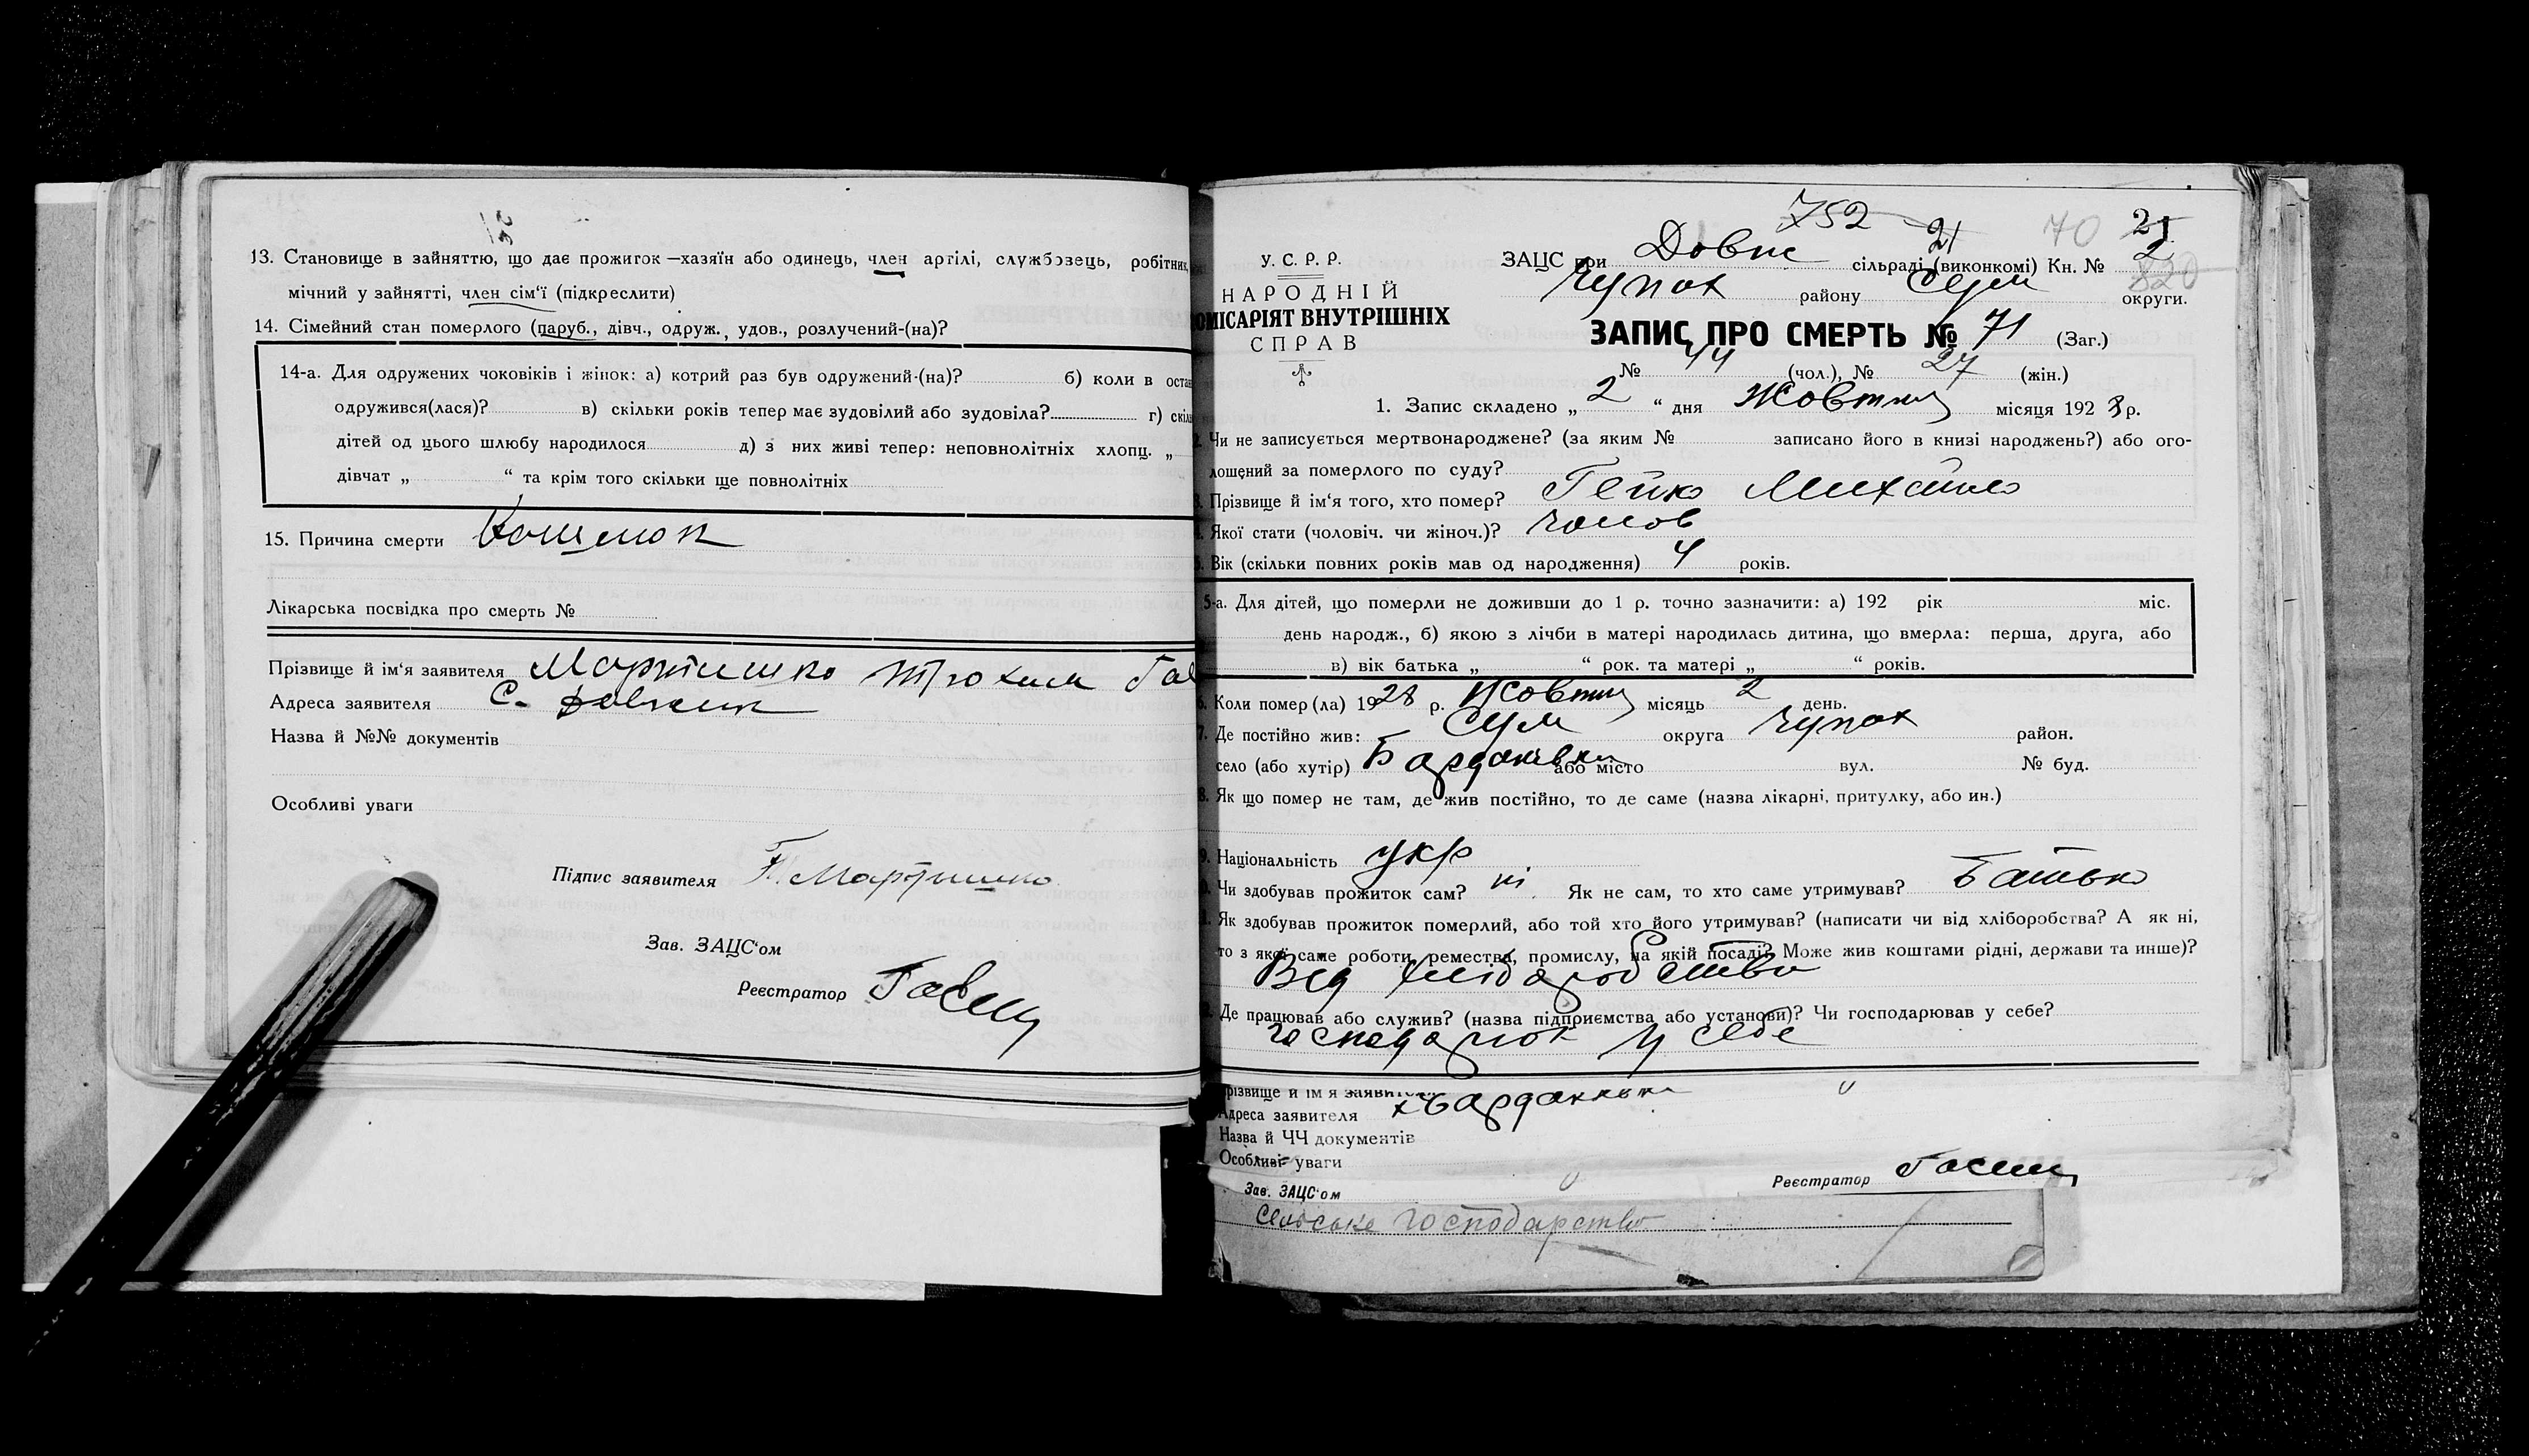 13. Становище в зайняттю, що дає прожиток —хазяїн або одинець, член артілі, службовець, робітник,
мічний у зайнятті, член сім'ї (підкреслити)
14. Сімейний стан померлого (паруб., дівч., одруж., удов., розлучений-(на)?
14-а. Для одружених чоковіків і жінок: а) котрий раз був одружений-(на)? б) коли в оста
одружився(лася)? в) скільки років тепер має зудовілий або зудовіла? г) скіль
дітей од цього шлюбу народилося д) з них живі тепер: неповнолітніх хлопц. „
дівчат „ “ та крім того скільки ще повнолітніх
15. Причина смерти Кошлюк
Лікарська посвідка про смерть №
Прізвище й ім'я заявителя Мартишко Трохим Гав
Адреса заявителя С. Довжик
Назва й №№ документів
Особливі уваги
Підпис заявителя Т. Мартишко
Зав. ЗАЦС'ом
Реєстратор
752
21 70 21
У. С. Р. Р.
ЗАЦС при Довж сільраді (виконкомі) Кн. № 2
820
Чупах району Сум округи.
НАРОДНІЙ
КОМІСАРІЯТ ВНУТРІШНІХ
СПРАВ
ЗАПИС ПРО СМЕРТЬ № 71 (Заг.)
№ 44 (чол.), № 27 (жін.)
1. Запис складено „ 2 “ дня Жовтня місяця 192 8 р.
2. Чи не записується мертвонароджене? (за яким № записано його в книзі народжень?) або ого-
лошений за померлого по суду?
3. Прізвище й ім'я того, хто помер? Гейко Михайло
4. Якої стати (чоловіч. чи жіноч.)? чолов
5. Вік (скільки повних років мав од народження) 4 років.
5-а. Для дітей, що померли не доживши до 1 р. точно зазначити: а) 192 рік міс.
день народж., б) якою з лічби в матері народилась дитина, що вмерла: перша, друга, або
в) вік батька „ “ рок. та матері „ “ років.
6. Коли помер (ла) 1928 р. Жовтня місяць 2 день.
7. Де постійно жив: Сум округа Чупах район.
село (або хутір) Бардаківка або місто вул. № буд.
8. Як що помер не там, де жив постійно, то де саме (назва лікарні, притулку, або ин.)
9. Національність укр
Чи здобував прожиток сам? ні. Як не сам, то хто саме утримував? Батько
Як здобував прожиток померлий, або той хто його утримував? (написати чи від хліборобства? А як ні,
то з якої саме роботи, ремества, промислу, на якій посаді? Може жив коштами рідні, держави та инше)?
Від хліборобства
Де працював або служив? (назва підприємства або установи)? Чи господарював у себе?
господарюв у себе
Прізвище й ім'я заявителя
Адреса заявителя
Назва й ЧЧ документів
Особливі уваги
Зав. ЗАЦС'ом Реєстратор
сельське господарство